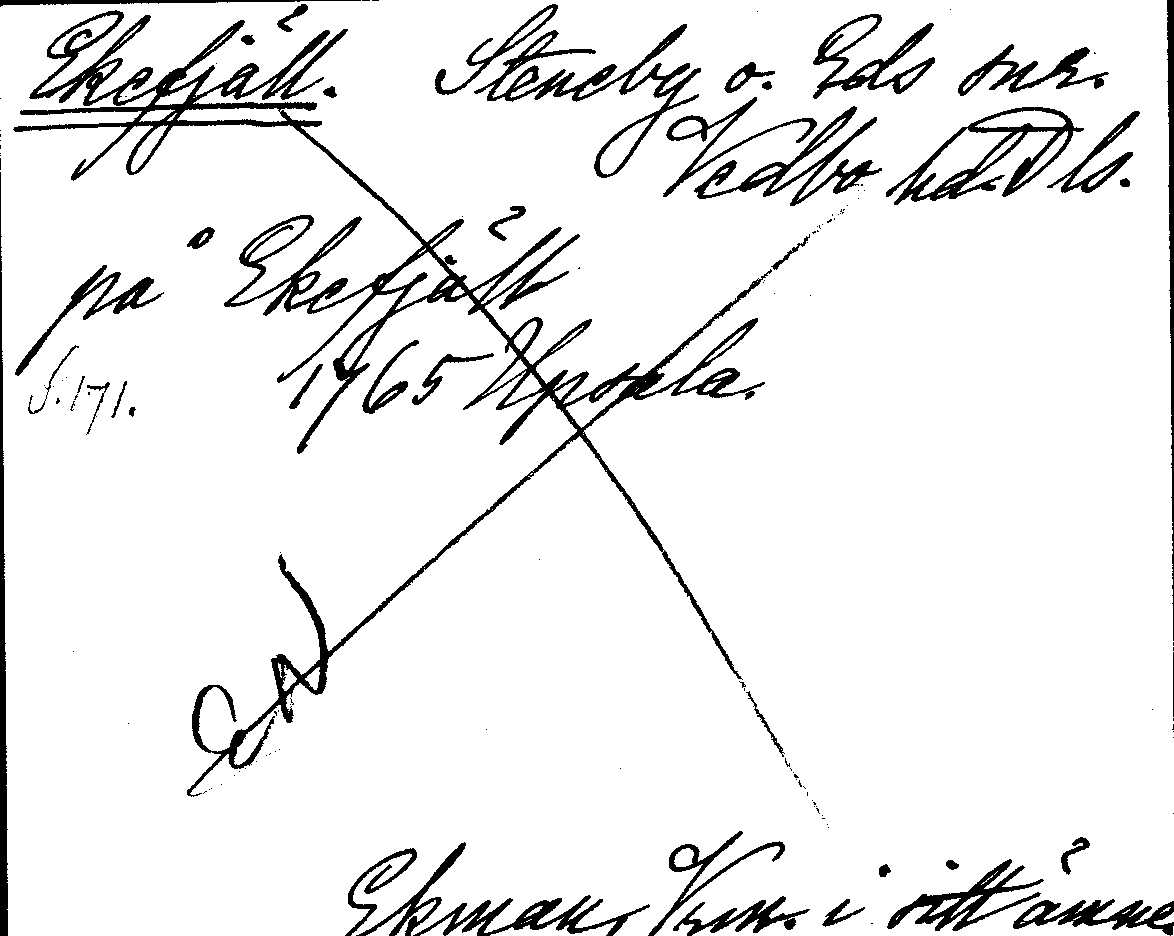 Ekefjäll. Steneby o. Eds snr.
Vedbo hd. Dls.
på Ekefjäll
1765 Upsala.
S. 171.
Ekman, Vrm. i sitt ämne